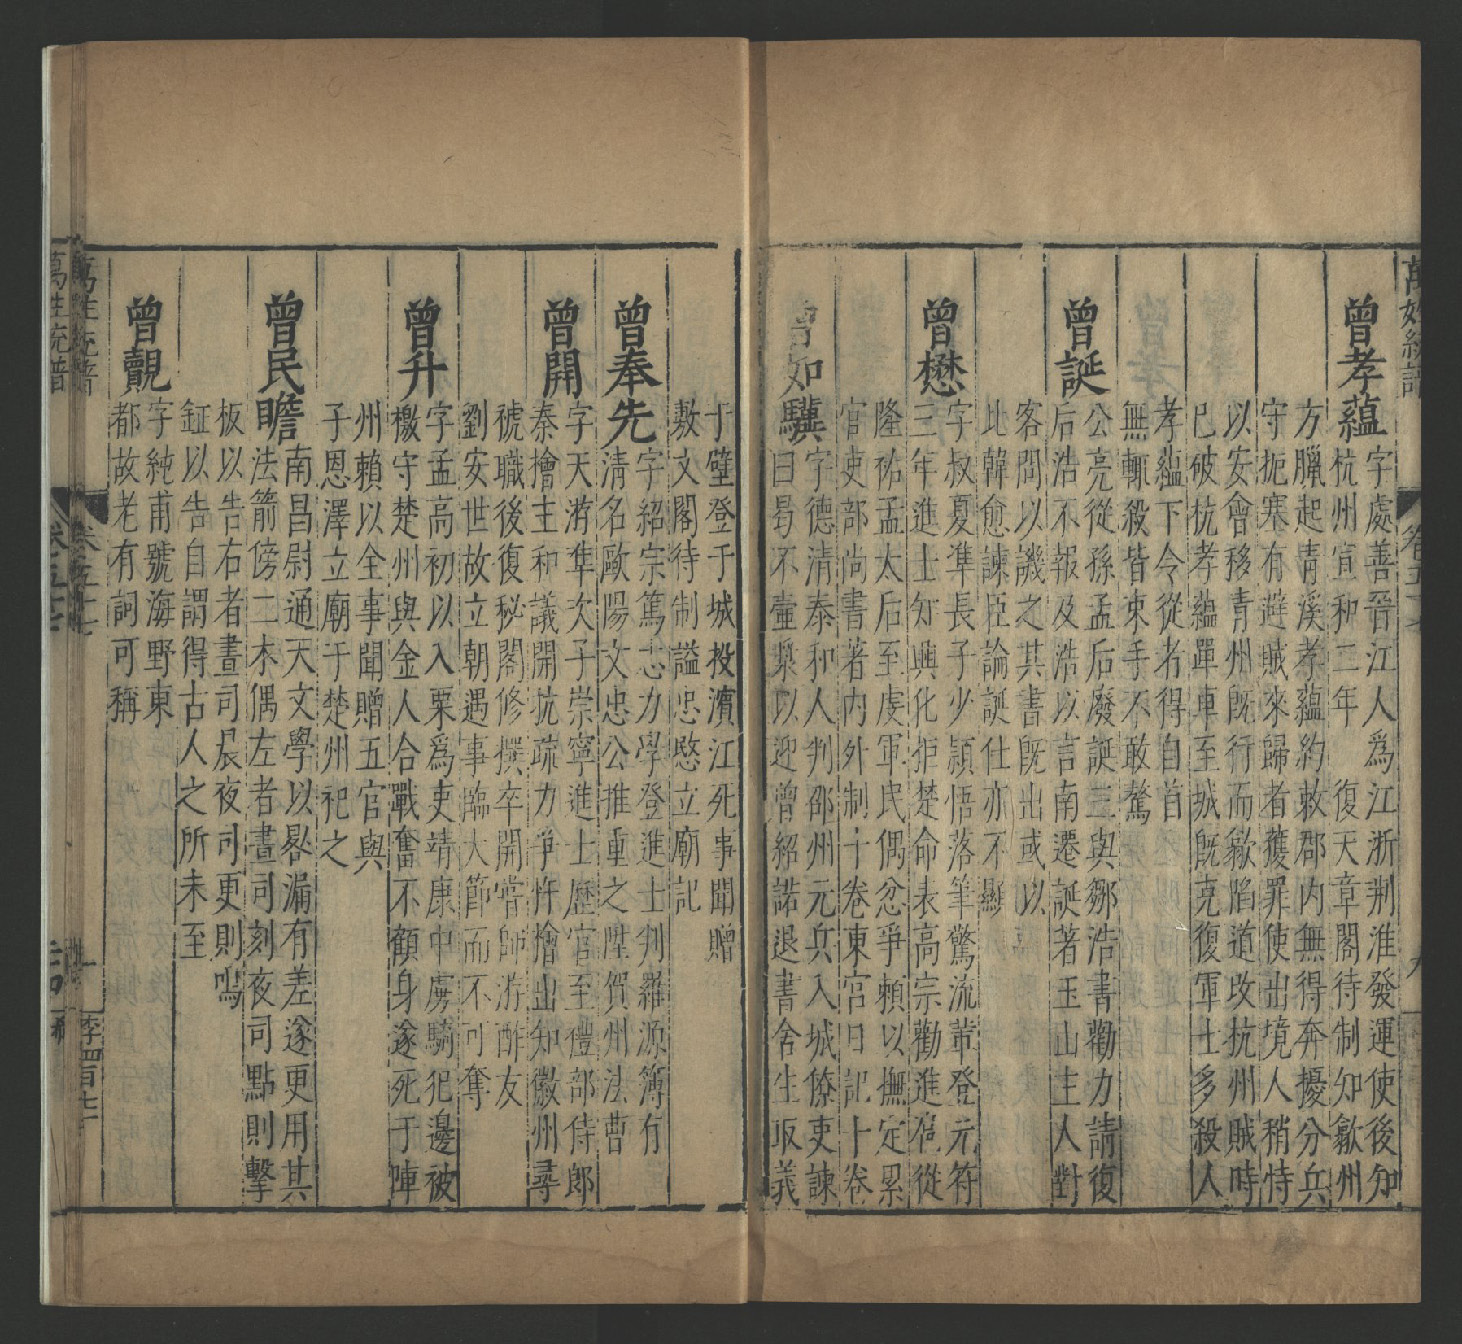 萬姓統譜
卷五十七
九
曾孝蘊字處善晉江人爲江浙荆淮發運使後知
杭州宣和二年　復天章閣待制知歙州
方臘起青溪孝蘊約敕郡內無得奔擾分兵
守扼塞有避賊來歸者獲罪使出境人稍恃
以安會移青州旣行而歙陷道改抗州賊時
已破杭孝蘊單車至城旣克復軍士多殺人
孝蘊下令從者得自首
無輙殺皆束手不敢驁
曾誕公亮從孫孟后廢誕三與鄒浩書勸力請復
后浩不報及浩以言南遷誕著玉山主人對
客問以譏之其書旣出或以
此韓愈諫臣論誕仕亦不顯
曾懋字叔夏準長子少頴悟落筆驚流輩登元符
三年進士知興化拒楚命表高宗勸進扈從
隆祐孟太后至虔軍民偶忿爭賴以撫定累
官吏部尚書著內外制十卷東宮日記十卷
曾如驥字德清泰和人判邵州元兵入城僚吏諫
曰曷不壷漿以迎曾紹諾退書舍生取義
于壁登于城投濆江死事聞贈
敷文閣待制謚忠愍立廟記
曾奉先字紹宗篤志力學登進士判羅源簿有
清名歐陽文忠公推重之陞賀州法曹
曾開字天游準次子崇寧進士歷官至禮部侍郎
秦檜主和議開抗疏力爭忤檜出知徽州尋
褫職後復秘閣修撰卒開嘗師游酢友
劉安世故立朝遇事臨大節而不可奪
曾升字孟高初以入粟爲吏靖康中虜騎犯邊被
檄守楚州與金人合戰奮不顧身遂死于陣
州賴以全事聞贈五官與
子恩澤立廟于楚州祀之
曾民瞻南昌尉通天文學以晷漏有差遂更用其
法箭傍二木偶左者晝司刻夜司點則擊
板以告右者晝司辰夜司更則鳴
鉦以告自謂得古人之所未至
曾覿字純甫號海野東
都故老有詞可稱
萬姓統譜
卷五十七